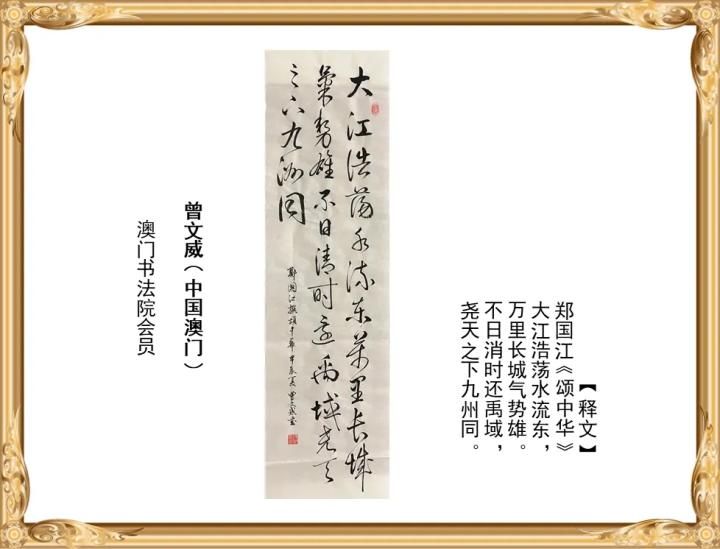 【释文】
郑国江《颂中华》
大江浩荡水流东，
万里长城气势雄。
不日消时还禹域，
尧天之下九州同。
大江浩荡水流东万里长城
气势雄不日清时还禹域尧天
之下九洲同
郑国江撰颂中华甲辰夏曾文威书
曾文威（中国澳门）
澳门书法院会员